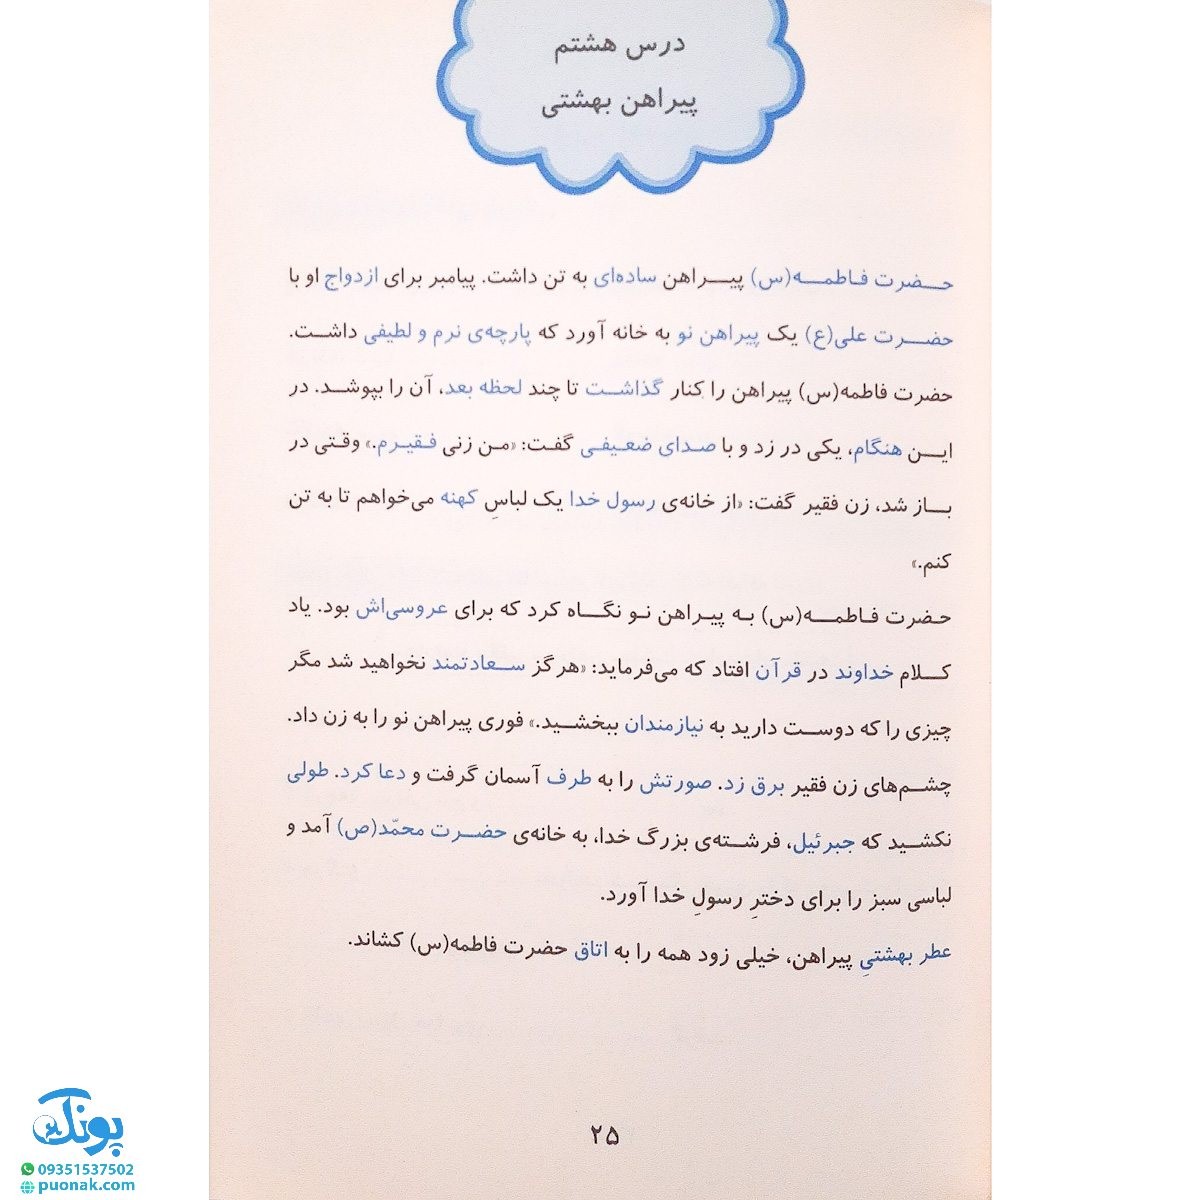 درس هشتم
پیراهن بهشتی
حضرت فاطمه(س) پیراهن ساده‌ای به تن داشت. پیامبر برای ازدواج او با
حضرت علی(ع) یک پیراهن نو به خانه آورد که پارچه‌ی نرم و لطیفی داشت.
حضرت فاطمه(س) پیراهن را کنار گذاشت تا چند لحظه بعد، آن را بپوشد. در
این هنگام، یکی در زد و با صدای ضعیفی گفت: «من زنی فقیرم.» وقتی در
باز شد، زن فقیر گفت: «از خانه‌ی رسول خدا یک لباسِ کهنه می‌خواهم تا به تن
کنم.»
حضرت فاطمه(س) به پیراهن نو نگاه کرد که برای عروسی‌اش بود. یاد
کلام خداوند در قرآن افتاد که می‌فرماید: «هرگز سعادتمند نخواهید شد مگر
چیزی را که دوست دارید به نیازمندان ببخشید.» فوری پیراهن نو را به زن داد.
چشم‌های زن فقیر برق زد. صورتش را به طرف آسمان گرفت و دعا کرد. طولی
نکشید که جبرئیل، فرشته‌ی بزرگ خدا، به خانه‌ی حضرت محمّد(ص) آمد و
لباسی سبز را برای دخترِ رسولِ خدا آورد.
عطر بهشتیِ پیراهن، خیلی زود همه را به اتاق حضرت فاطمه(س) کشاند.
۲۵
پونک
09351537502
puonak.com